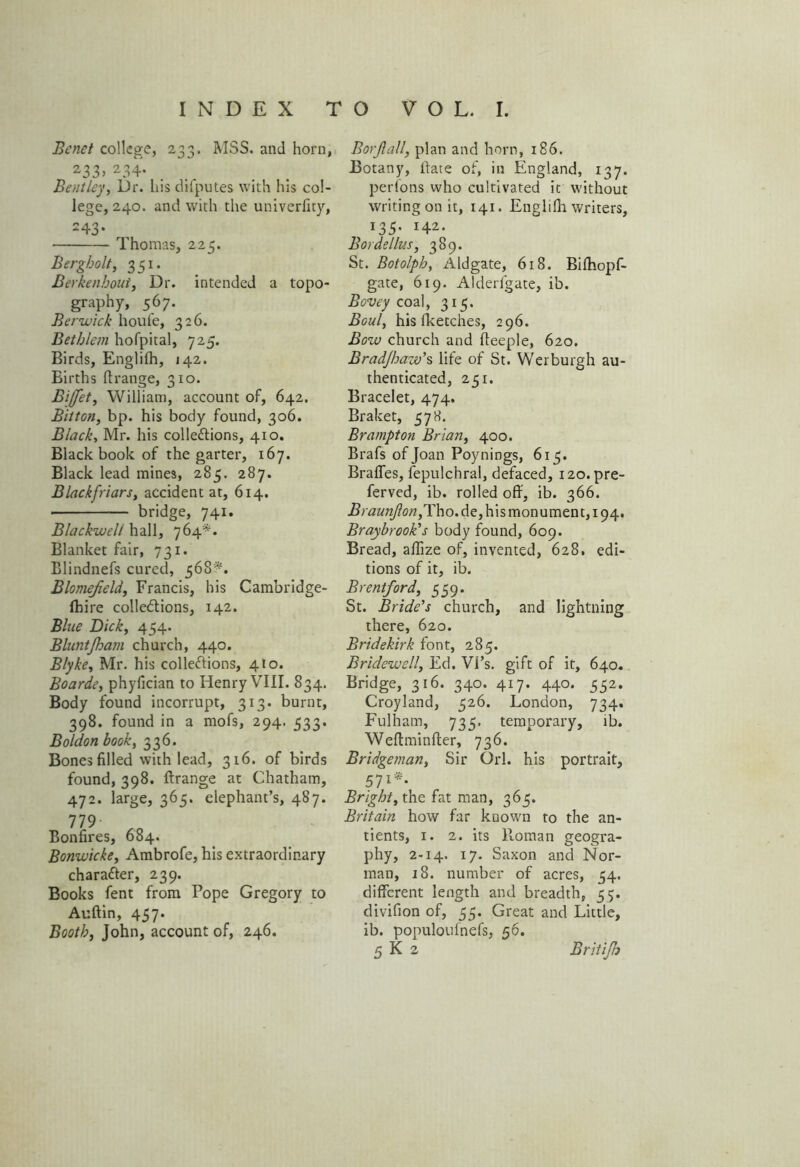 INDEX TO VOL. I.
Benet college, 233. MSS. and horn,
233, 234.
Bentley, Dr. his difputes with his col-
lege, 240. and with the univerfity,
243.
——— Thomas, 225.
Bergholt, 351.
Berkenhout, Dr. intended a topo-
graphy, 567.
Berwick houfe, 326.
Bethlem hofpital, 725.
Birds, Englifh, 142.
Births ftrange, 310.
Biffet, William, account of, 642.
Bitton, bp. his body found, 306.
Black, Mr. his collections, 410.
Black book of the garter, 167.
Black lead mines, 285. 287.
Blackfriars, accident at, 614.
——— bridge, 741.
Blackwell hall, 764*.
Blanket fair, 731.
Blindnefs cured, 568*.
Blomefield, Francis, his Cambridge-
fhire collections, 142.
Blue Dick, 454.
Bluntfham church, 440.
Blyke, Mr. his collections, 410.
Boarde, phyfician to Henry VIII. 834.
Body found incorrupt, 313. burnt,
398. found in a mofs, 294. 533.
Boldon book, 336.
Bones filled with lead, 316. of birds
found, 398. ftrange at Chatham,
472. large, 365. elephant's, 487.
779.
Bonfires, 684.
Bonwicke, Ambrofe, his extraordinary
character, 239.
Books fent from Pope Gregory to
Auftin, 457.
Booth, John, account of, 246.
Borftall, plan and horn, 186.
Botany, ftate of, in England, 137.
perfons who cultivated it without
writing on it, 141. Englifh writers,
135. 142.
Bordellus, 389.
St. Botolph, Aldgate, 618. Bifhopf-
gate, 619. Alderfgate, ib.
Bovey coal, 315.
Boul, his fketches, 296.
Bow church and fteeple, 620.
Bradfhaw's life of St. Werburgh au-
thenticated, 251.
Bracelet, 474.
Braket, 578.
Brampton Brian, 400.
Brafs of Joan Poynings, 615.
Braffes, fepulchral, defaced, 120. pre-
ferved, ib. rolled off, ib. 366.
Braunfton, Tho. de, his monument, 194.
Braybrook's body found, 609.
Bread, affize of, invented, 628. edi-
tions of it, ib.
Brentford, 559.
St. Bride's church, and lightning
there, 620.
Bridekirk font, 285.
Bridewell, Ed. VI's. gift of it, 640.
Bridge, 316. 340. 417. 440. 552.
Croyland, 526. London, 734.
Fulham, 735. temporary, ib.
Weftminfter, 736.
Bridgeman, Sir Orl. his portrait,
571*.
Bright, the fat man, 365.
Britain how far known to the an-
tients, 1. 2. its Roman geogra-
phy, 2-14. 17. Saxon and Nor-
man, 18. number of acres, 54.
different length and breadth, 55.
divifion of, 55. Great and Little,
ib. populoufnefs, 56.
5 K 2 Britifh